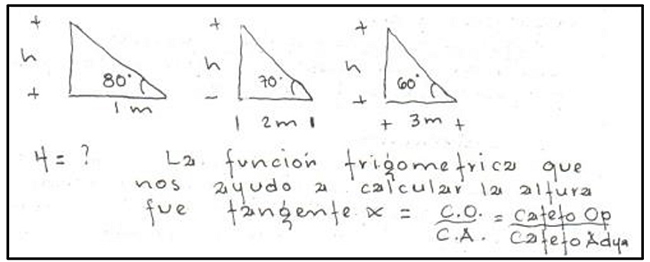 + + +
h 80° h 70° h 60°
+ - +
1 m 2 m + 3 m +
4 = ? La función trigometrica que
nos ayudo a calcular la altura
fue tangente x = C.O. = Cateto Op
C.A. Cateto Adya